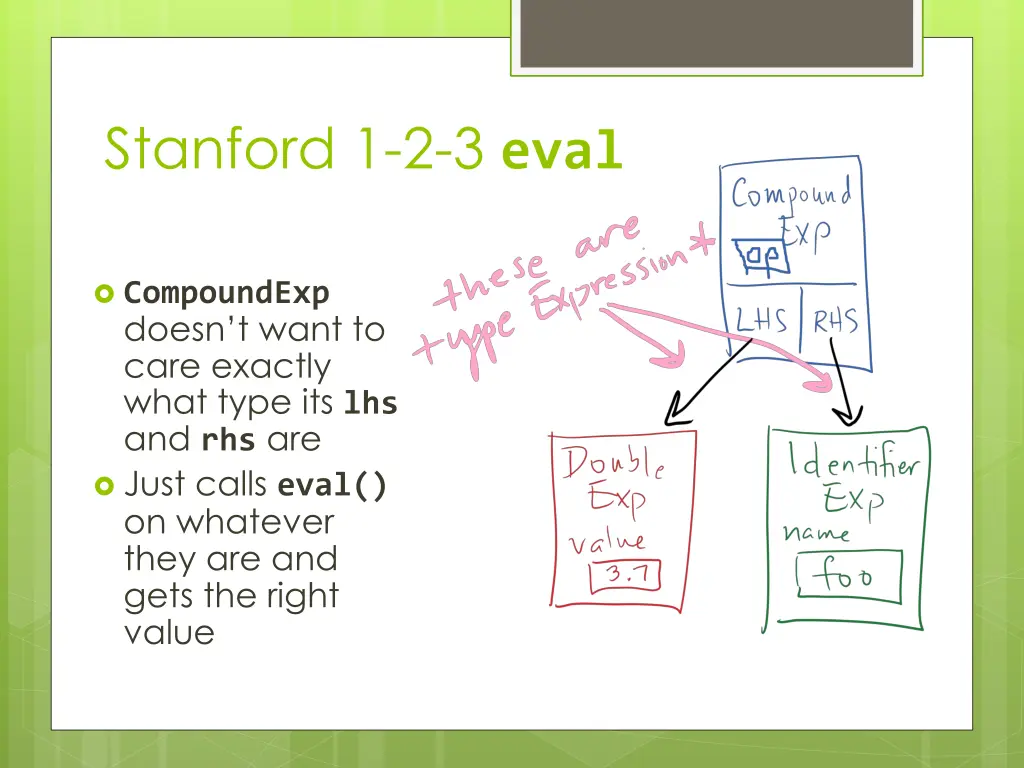 Stanford 1-2-3 eval
CompoundExp
doesn’t want to
care exactly
what type its lhs
and rhs are
Just calls eval()
on whatever
they are and
gets the right
value
these are
type Expression*
Compound
Exp
op
LHS RHS
Double
Exp
value
3.7
Identifier
Exp
name
foo